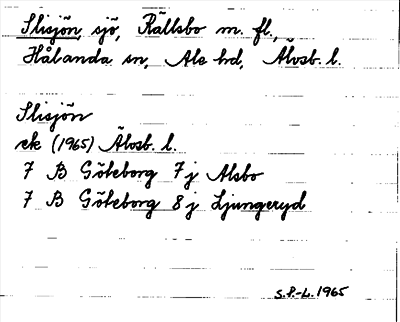 Slisjön, sjö, Rällsbo m. fl.,
Hålanda sn, Ale hd, Älvsb. l.
Slisjön
ek (1965) Älvsb. l.
7 B Göteborg 7 j Alsbo
7 B Göteborg 8 j Ljungeryd
S.P.-L. 1965